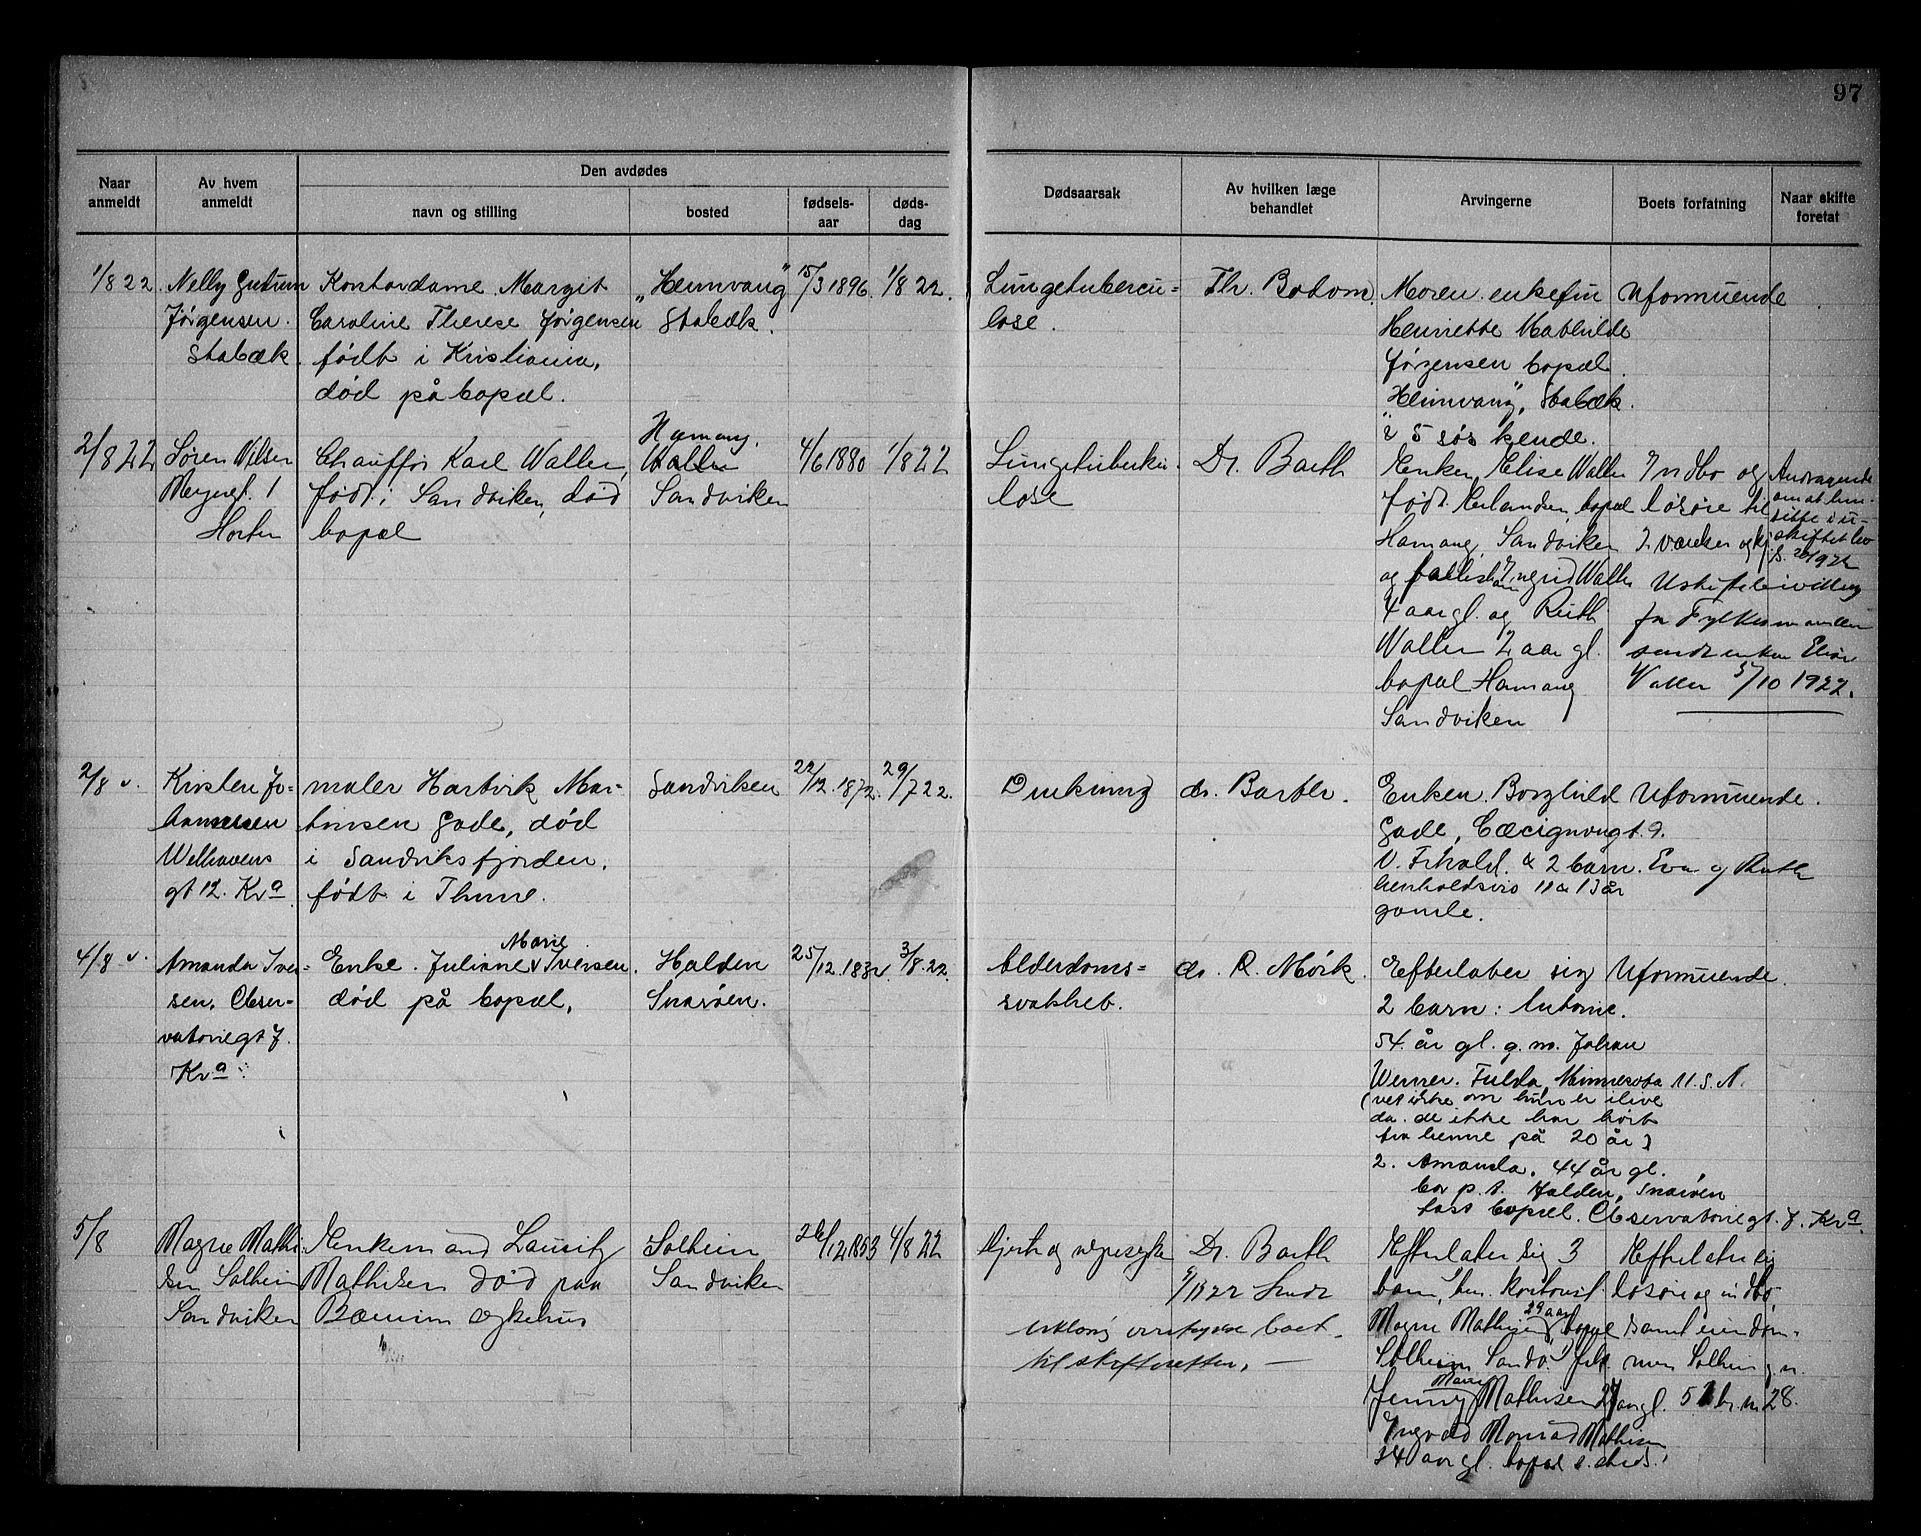 97
Naar anmeldt
Av hvem anmeldt
Den avdødes
navn og stilling
bosted
fødselsaar
dødsdag
Dødsaarsak
Av hvilken læge behandlet
Arvingerne
Boets forfatning
Naar skifte foretat
1/8 22.
Nelly Gudrun
Jørgensen.
Stabæk.
Kontordame. Margit
Caroline Therese Jørgensen
født i Kristiania,
død på bopæl.
"Heimvang"
Stabæk.
15/3 1896.
1/8 22.
Lungetubercu=
lose.
Th. Bodom
Moren. enkefru
Henriette Mathilde
Jørgensen bopæl.
"Heimvang", Stabæk.
& 5 søskende.
Uformuende
2/8 22
Søren Nilsen
1
Horten
Chauffør Karl Waller,
født i Sandviken, død
bopæl
Hamang.
Sandviken
4/6 1880
1/8 22
Lungetuberku-
lose
Dr. Barth
Enken Elise Waller
født Herlandsen, bopæl
Hamang, Sandviken
og Ingrid Waller
4 aar gl. og Ruth
Waller 2 aar gl.
bopæl Hamang
Sandviken
Indbo og
løsøre til
2 værelser og kj.
Andragende
om at hen-
sitte i u-
skiftet bo
Uskiftebevilling
fra Fylkesmanden
sendt enken Elise
Waller 5/10 1922.
2/8 v.
Kirsten Jo-
hannessen
Welhavens
gt 12. Kra
maler Hartvik Mar-
tinsen Gade, død
i Sandviksfjorden.
født i Thune.
Sandviken
22/12.1872.
29/7 22.
Drukning
dr. Barth.
Enken. Borghild
Gade, 9.
& 2 barn. Eva og Ruth
henholdsvis 11 & 13 år
gamle.
Uformuende.
4/8 v.
Amanda Iver=
sen, Obser-
vatoriegt 7.
Kra.
Enke. Juliane Marie Iversen.
død på bopæl.
Halden
Snarøen.
25/12.1832.
3/8.22.
Alderdoms=
svakhet.
dr. R. Mørk.
Efterlater sig
2 barn: Antonie.
54. år gl. g. m. Johan
Werner. Fulda, Minnesota U.S.A.
(vet ikke om hun er ilive
da. de ikke har hørt
fra henne på 20 år)
2. Amanda. 44 år gl.
bor p.t. Halden, Snarøen
fast bopæl. Observatoriegt. 7. Kra
Uformuende.
5/8
Magne Mathi-
sen Solheim
Sandviken
Enkemand Lauritz
Mathisen død paa
Bærum sykehus
Solheim
Sandviken
26/12 1853
4/8 22
Hjerte og nyresyke
Dr. Barth
9/10 22 sendt
boet
til skifteretten. —
Efterlater sig 3
barn,
Magne Mathisen 29 aar bopæl
Solheim Sandv.
Jenny Marie Mathisen 27 aar gl.
Ingvald Monrad Mathisen
34 aar gl. bopæl s. steds.
Efterlater sig
løsøre og indbo
samt eiendom-
men Solheim g.n.
51 br. n 28.